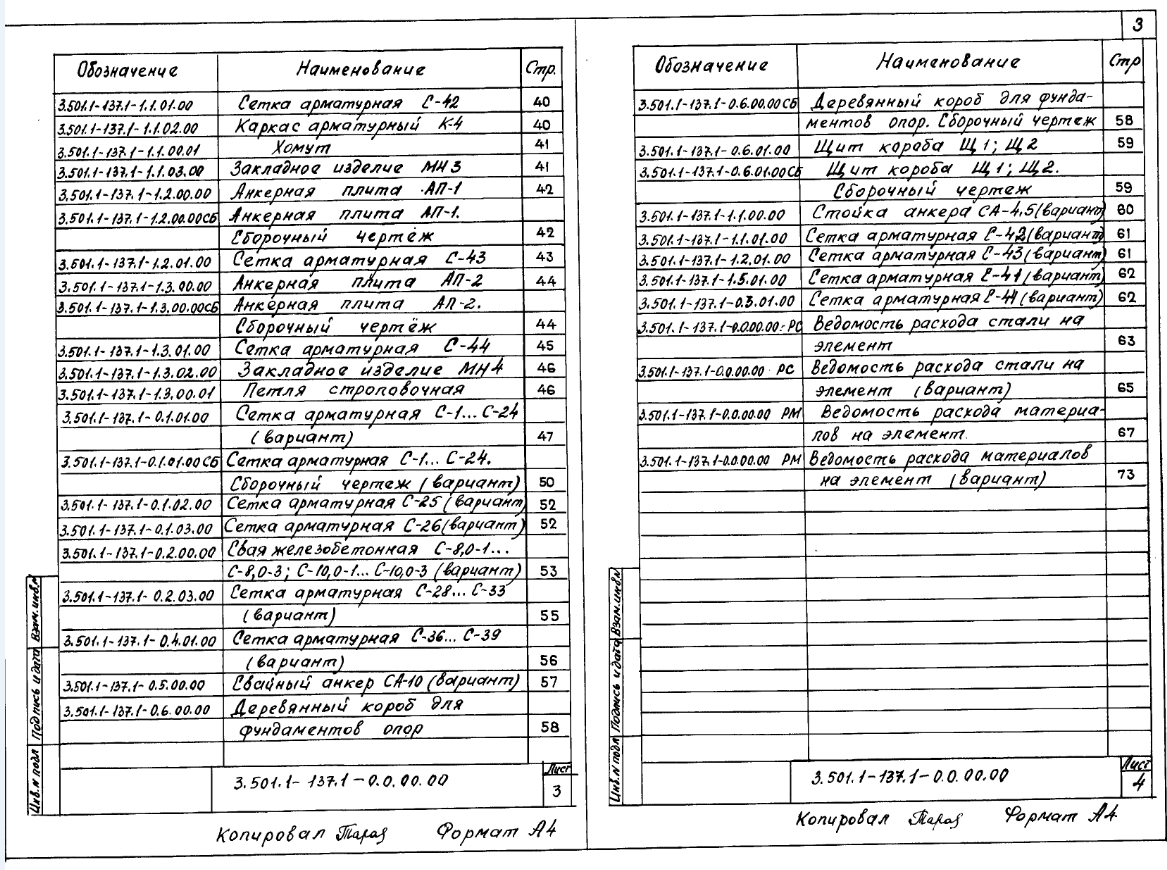 3
Обозначение Наименование Стр.
3.501.1-137.1-1.1.01.00 Сетка арматурная С-42 40
3.501.1-137.1-1.1.02.00 Каркас арматурный К-4 40
3.501.1-137.1-1.1.00.01 Хомут 41
3.501.1-137.1-1.1.03.00 Закладное изделие МН3 41
3.501.1-137.1-1.2.00.00 Анкерная плита АП-1 42
3.501.1-137.1-1.2.00.00СБ Анкерная плита АП-1.
Сборочный чертёж 42
3.501.1-137.1-1.2.01.00 Сетка арматурная С-43 43
3.501.1-137.1-1.3.00.00 Анкерная плита АП-2 44
3.501.1-137.1-1.3.00.00СБ Анкерная плита АП-2.
Сборочный чертёж 44
3.501.1-137.1-1.3.01.00 Сетка арматурная С-44 45
3.501.1-137.1-1.3.02.00 Закладное изделие МН4 46
3.501.1-137.1-1.3.00.01 Петля строповочная 46
3.501.1-137.1-0.1.01.00 Сетка арматурная С-1... С-24
(вариант) 47
3.501.1-137.1-0.1.01.00 СБ Сетка арматурная С-1... С-24.
Сборочный чертеж (вариант) 50
3.501.1-137.1-0.1.02.00 Сетка арматурная С-25 (вариант) 52
3.501.1-137.1-0.1.03.00 Сетка арматурная С-26 (вариант) 52
3.501.1-137.1-0.2.00.00 Свая железобетонная С-8,0-1...
С-8,0-3; С-10,0-1... С-10,0-3 (вариант) 53
3.501.1-137.1-0.2.03.00 Сетка арматурная С-28... С-33
(вариант) 55
3.501.1-137.1-0.4.01.00 Сетка арматурная С-36... С-39
(вариант) 56
3.501.1-137.1-0.5.00.00 Свайный анкер СА-10 (вариант) 57
3.501.1-137.1-0.6.00.00 Деревянный короб для
фундаментов опор 58
Инв.N подл Подпись и дата Взам.инв.N
3.501.1-137.1-0.0.00.00
Лист
3
Копировал Формат А4
Обозначение Наименование Стр
3.501.1-137.1-0.6.00.00СБ Деревянный короб для фунда-
ментов опор. Сборочный чертеж 58
3.501.1-137.1-0.6.01.00 Щит короба Щ1; Щ2 59
3.501.1-137.1-0.6.01.00СБ Щит короба Щ1; Щ2.
Сборочный чертеж 59
3.501.1-137.1-1.1.00.00 Стойка анкера СА-4,5(вариант) 60
3.501.1-137.1-1.1.01.00 Сетка арматурная С-42(вариант) 61
3.501.1-137.1-1.2.01.00 Сетка арматурная С-43(вариант) 61
3.501.1-137.1-1.5.01.00 Сетка арматурная С-41(вариант) 62
3.501.1-137.1-0.3.01.00 Сетка арматурная (вариант) 62
3.501.1-137.1-0.0.00.00-РС Ведомость расхода стали на
элемент 63
3.501.1-137.1-0.0.00.00 РС Ведомость расхода стали на
элемент (вариант) 65
3.501.1-137.1-0.0.00.00 РМ Ведомость расхода материа-
лов на элемент. 67
3.501.1-137.1-0.0.00.00 РМ Ведомость расхода материалов
на элемент (вариант) 73
Инв.N подл Подпись и дата Взам.инв.N
3.501.1-137.1-0.0.00.00
Лист
4
Копировал Формат А4